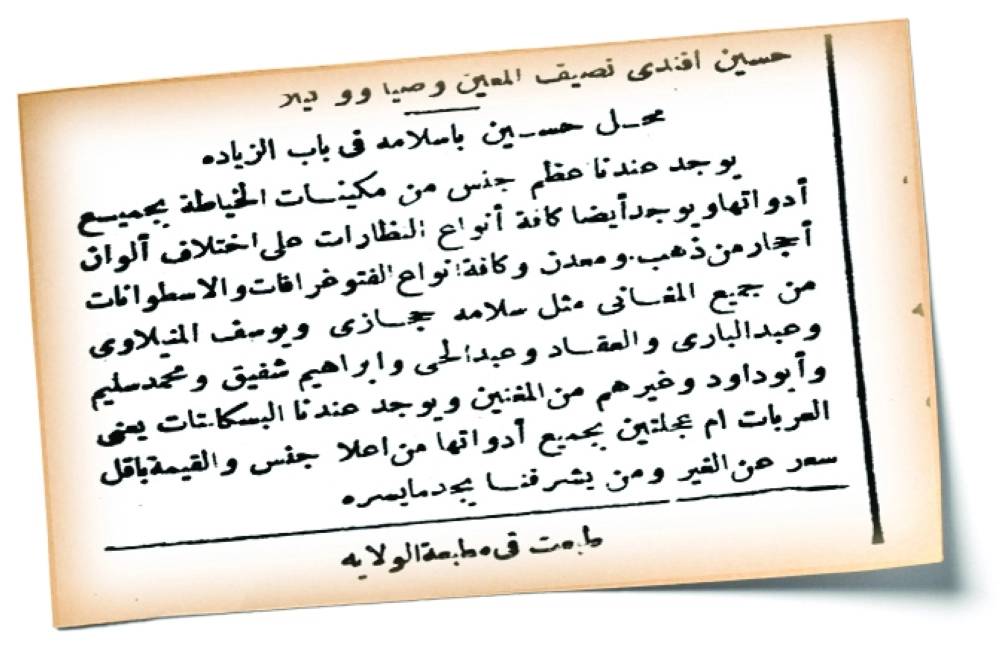 حسين افندى نصيف المعين وصيا وو ليلا
محل حسين باسلامه فى باب الزياده
يوجد عندنا عظم جنس من مكينات الخياطة بجميع
أدواتها ويوجد أيضا كافة أنواع النظارات على اختلاف ألوان
أحجار من ذهب ومعدن وكافة انواع الفتوغرافات والاسطوانات
من جميع المغانى مثل سلامه حجازى ويوسف المنيلاوى
وعبد البارى والعقاد وعبد الحى وابراهيم شفيق ومحمد سليم
وأبو داود وغيرهم من المغنين ويوجد عندنا البسكلتات يعنى
العربات ام عجلتين بجميع أدواتها من اعلا جنس والقيمة باقل
سعر عن الغير ومن يشرفنا يجد مايسره
طبعت فى مطبعة الولايه